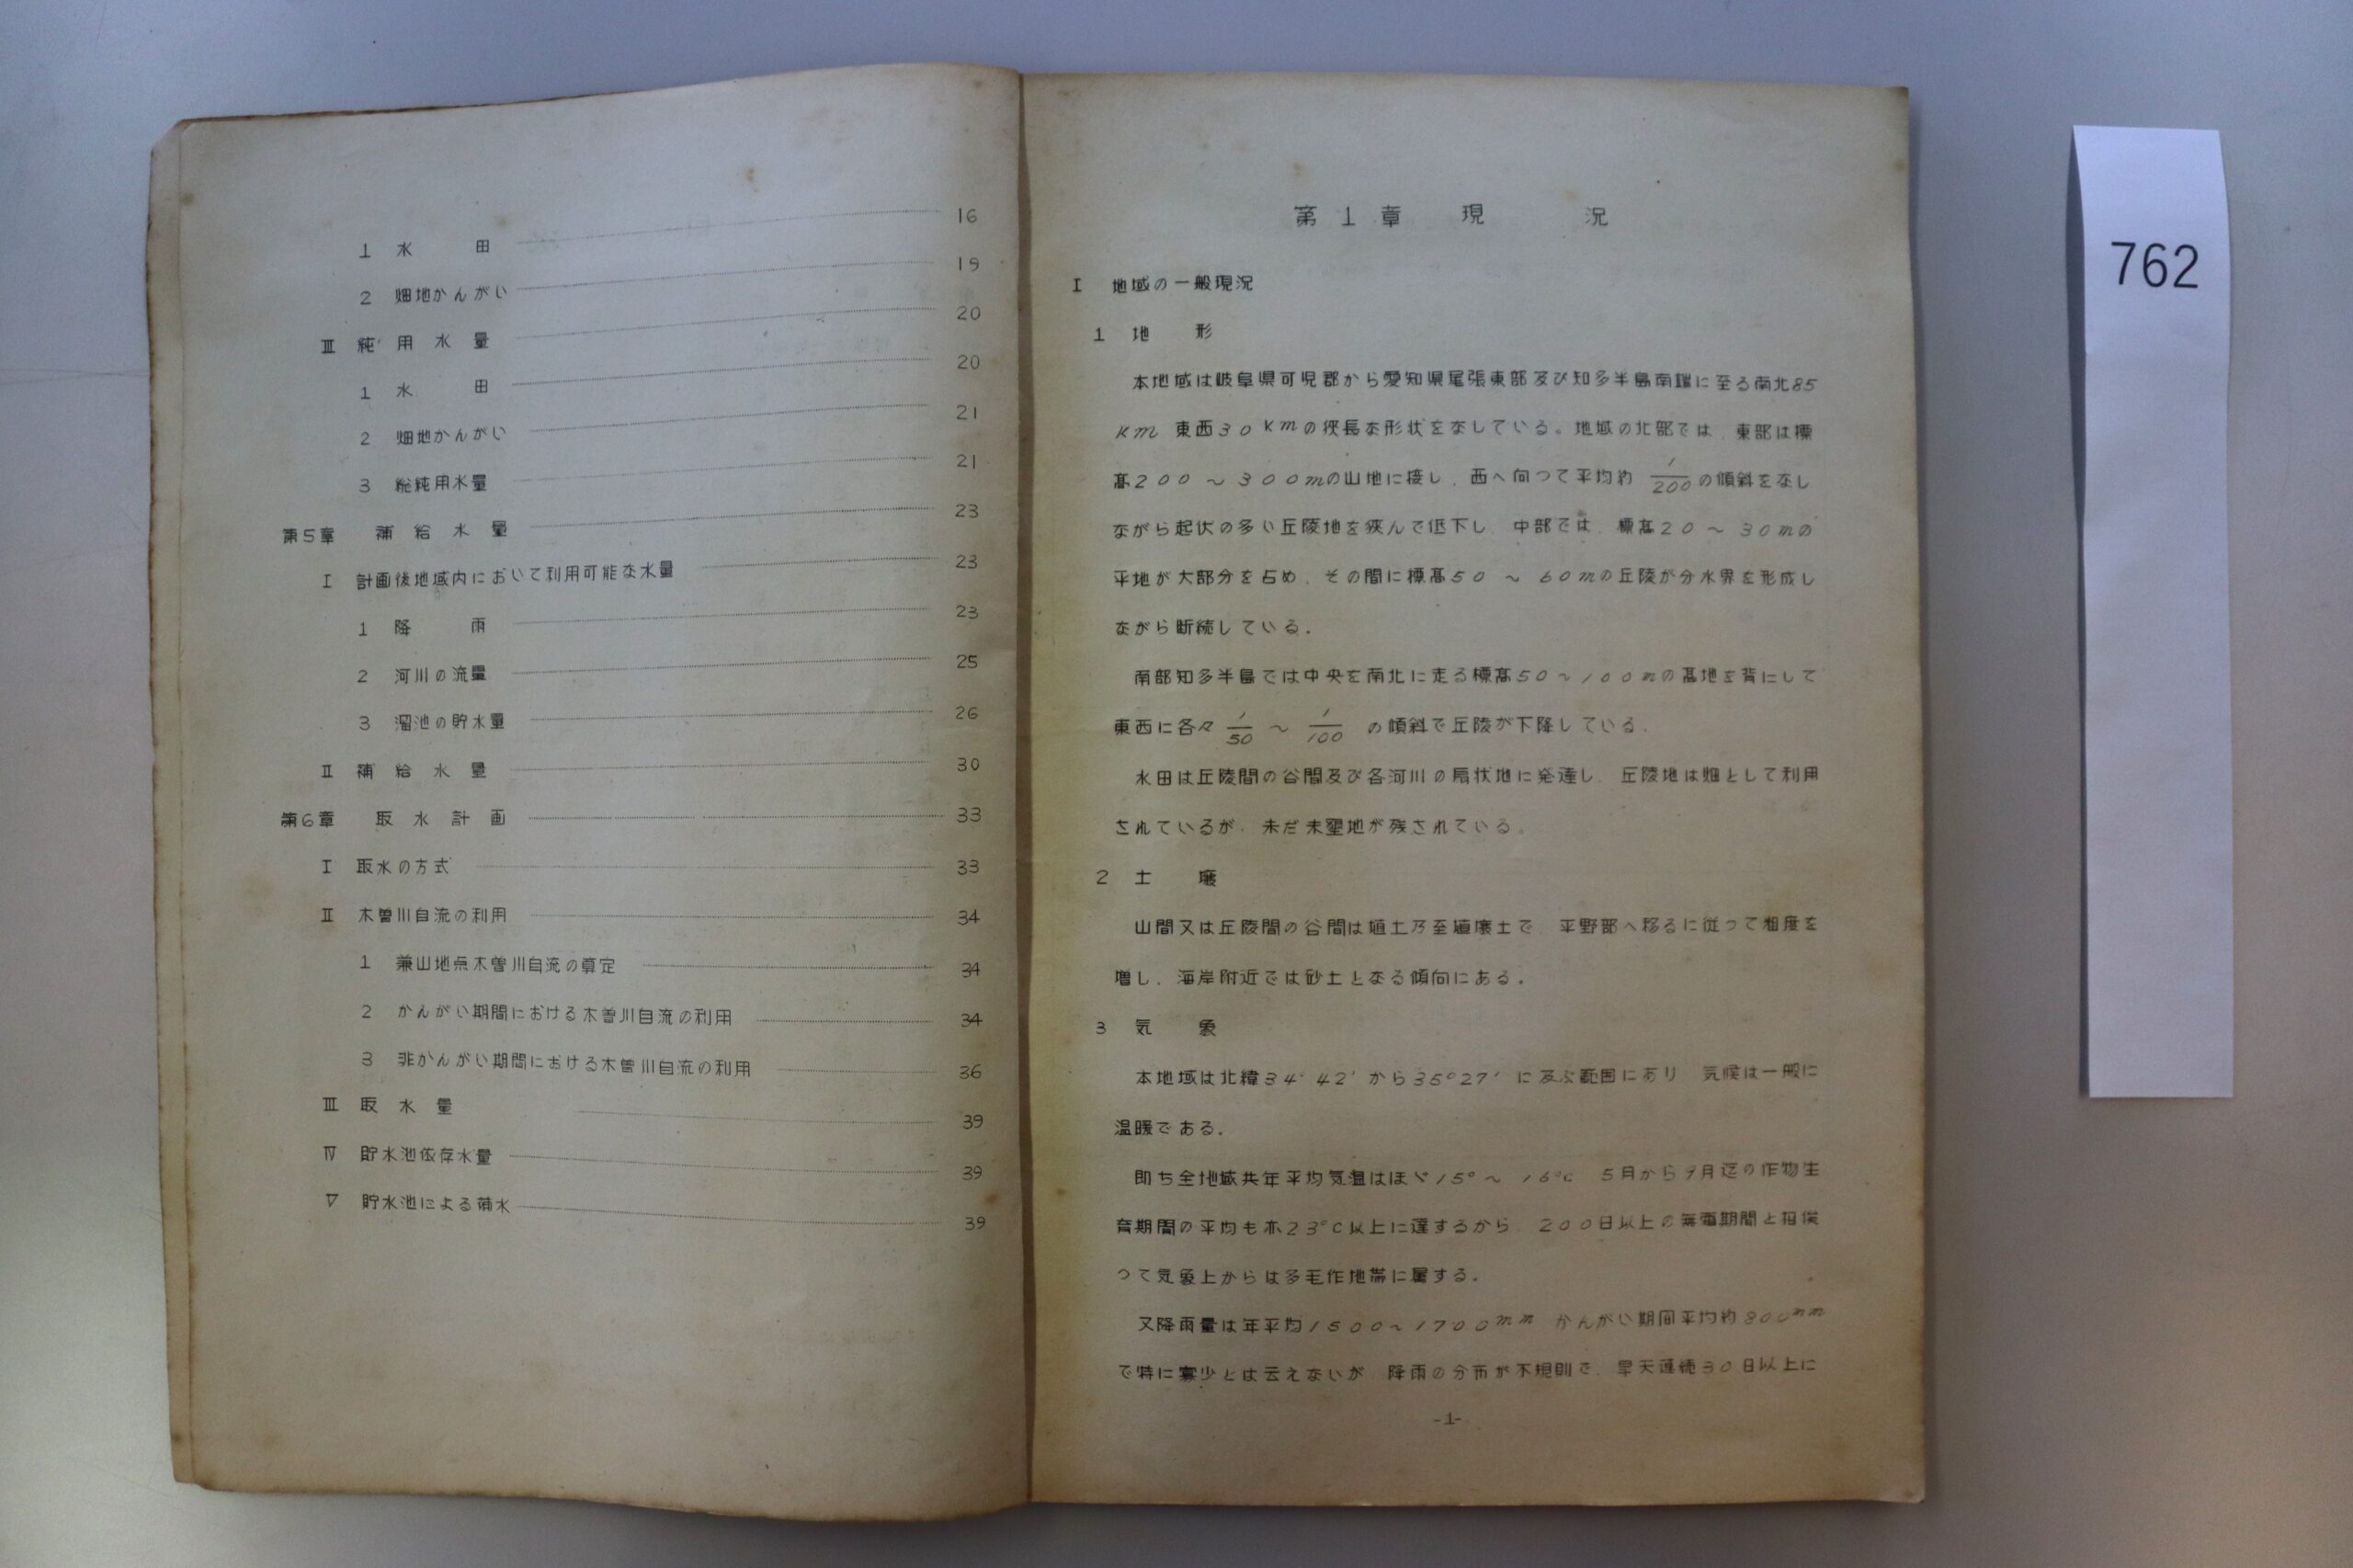 1 水 田 16
2 畑地かんがい 19
Ⅲ 純用水量 20
1 水 田 20
2 畑地かんがい 21
3 総純用水量 21
第5章 補給水量 23
Ⅰ 計画後地域内において利用可能な水量 23
1 降 雨 23
2 河川の流量 25
3 溜池の貯水量 26
Ⅱ 補給水量 30
第6章 取水計画 33
Ⅰ 取水の方式 33
Ⅱ 木曽川自流の利用 34
1 兼山地点木曽川自流の算定 34
2 かんがい期間における木曽川自流の利用 34
3 非かんがい期間における木曽川自流の利用 36
Ⅲ 取水量 39
Ⅳ 貯水池依存水量 39
Ⅴ 貯水池による補水 39
第1章 現 況
Ⅰ 地域の一般現況
1 地 形
本地域は岐阜県可児郡から愛知県尾張東部及び知多半島南端に至る南北85
Km 東西30Kmの狭長な形状をなしている。地域の北部では、東部は標
高200～300mの山地に接し、西へ向つて平均約 1/200 の傾斜をなし
ながら起伏の多い丘陵地を挟んで低下し、中部では、標高20～30mの
平地が大部分を占め、その間に標高50～60mの丘陵が分水界を形成し
ながら断続している。
南部知多半島では中央を南北に走る標高50～100mの高地を背にして
東西に各々 1/50 ～ 1/100 の傾斜で丘陵が下降している。
水田は丘陵間の谷間及び各河川の扇状地に発達し、丘陵地は畑として利用
されているが、未だ未墾地が残されている。
2 土 壌
山間又は丘陵間の谷間は埴土乃至埴壌土で、平野部へ移るに従つて粗度を
増し、海岸附近では砂土となる傾向にある。
3 気 象
本地域は北緯34°42′から35°27′に及ぶ範囲にあり 気候は一般に
温暖である。
即ち全地域共年平均気温はほゞ15°～16°C 5月から9月迄の作物生
育期間の平均も亦23°C以上に達するから、200日以上の無霜期間と相俟
つて気象上からは多毛作地帯に属する。
又降雨量は年平均1500～1700mm かんがい期間平均約800mm
で特に寡少とは云えないが 降雨の分布が不規則で、旱天連続30日以上に
-1-
762